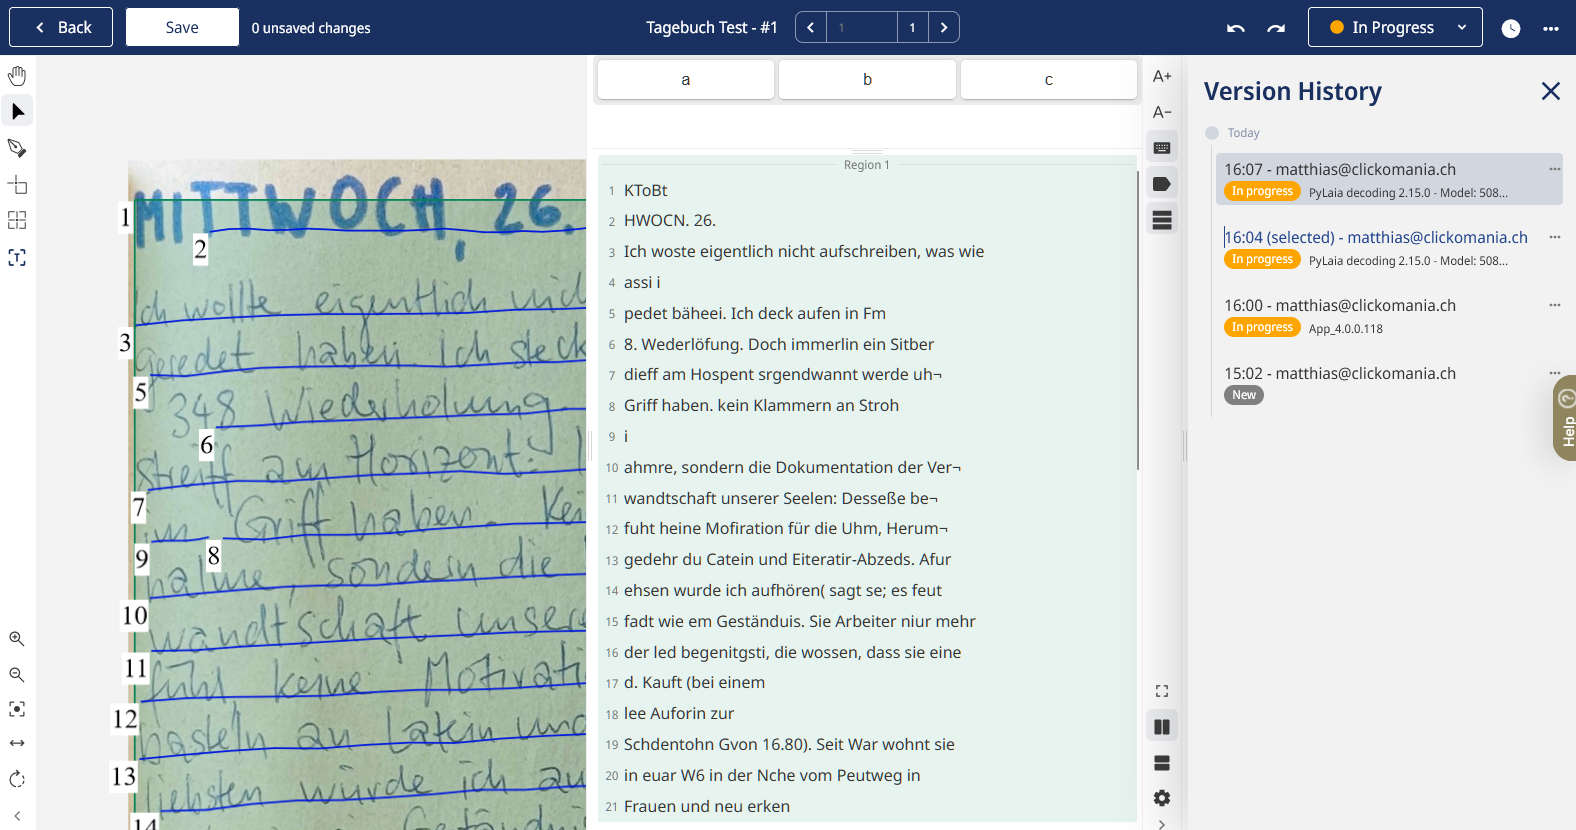 Back
Save
0 unsaved changes
Tagebuch Test - #1
1
1
In Progress
a
b
c
A+
A-
MITTWOCH, 26.
Ich wollte eigentlich nich
geredet haben. Ich steck
348. Wiederholung.
streiff am Horizont.
im Griff haben. Kei
halme, sondern die
wandtschaft unsere
fühl keine Motivati
basteln an Latein und
liebsten würde ich au
Geständni
1
2
3
5
6
7
8
9
10
11
12
13
14
Region 1
1 KToBt
2 HWOCN. 26.
3 Ich woste eigentlich nicht aufschreiben, was wie
4 assi i
5 pedet bäheei. Ich deck aufen in Fm
6 8. Wederlöfung. Doch immerlin ein Sitber
7 dieff am Hospent srgendwannt werde uh¬
8 Griff haben. kein Klammern an Stroh
9 i
10 ahmre, sondern die Dokumentation der Ver¬
11 wandtschaft unserer Seelen: Desseße be¬
12 fuht heine Mofiration für die Uhm, Herum¬
13 gedehr du Catein und Eiteratir-Abzeds. Afur
14 ehsen wurde ich aufhören( sagt se; es feut
15 fadt wie em Geständuis. Sie Arbeiter niur mehr
16 der led begenitgsti, die wossen, dass sie eine
17 d. Kauft (bei einem
18 lee Auforin zur
19 Schdentohn Gvon 16.80). Seit War wohnt sie
20 in euar W6 in der Nche vom Peutweg in
21 Frauen und neu erken
Version History
Today
16:07 - matthias@clickomania.ch
In progress PyLaia decoding 2.15.0 - Model: 508...
16:04 (selected) - matthias@clickomania.ch
In progress PyLaia decoding 2.15.0 - Model: 508...
16:00 - matthias@clickomania.ch
In progress App_4.0.0.118
15:02 - matthias@clickomania.ch
New
Help